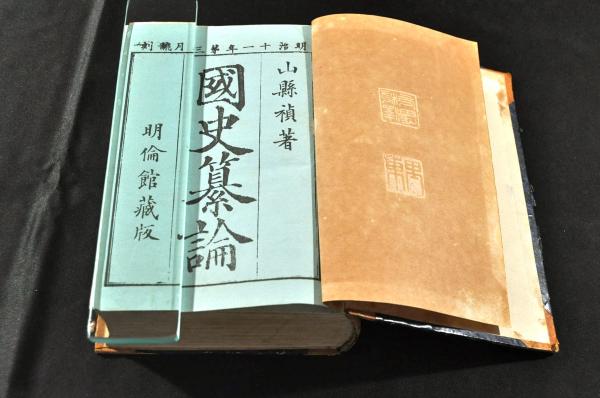 明治十一年第三月飜刻
山縣禎著
國史纂論
明倫館藏版